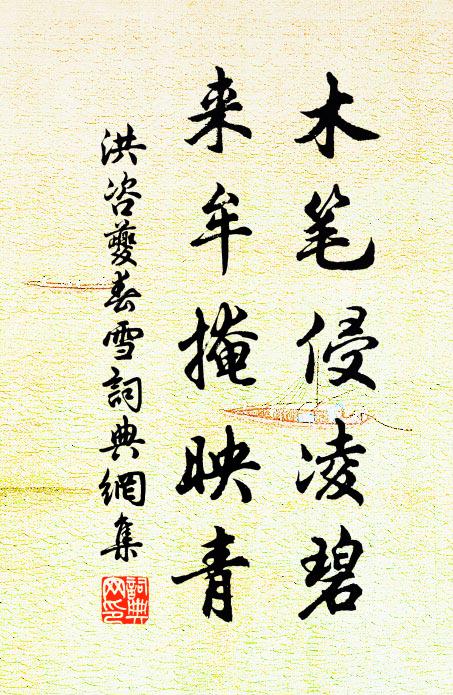 木笔侵凌碧
来牟掩映青
洪咨夔春雪詞典網集
詞典网印